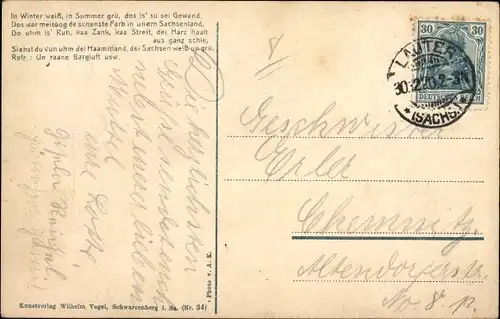 In Winter weiß, in Summer grü, dos is' su sei Gewand.
Dos war meitoog de schenste Farb in unern Sachsenland,
Do uhm is' Ruh, kaa Zank, kaa Streit, dei Harz haalt
aus ganz schie,
Siehst du vun uhm dei Haamitland, dei Sachsen weiß un grü,
Refr.: Un raane Bargluft usw.
30
DEUTSCHES REICH
LAUTER
30.12.20. 2-3N
* (SACHS.) *
Die herzlichsten
Grüße senden euch
nebst euer lieben
Lotte
Geschwister
Erler
Chemnitz
Altendorferstr.
No 8. p.
Photo v. A. K.
Kunstverlag Wilhelm Vogel, Schwarzenberg i. Sa. (Nr. 34)